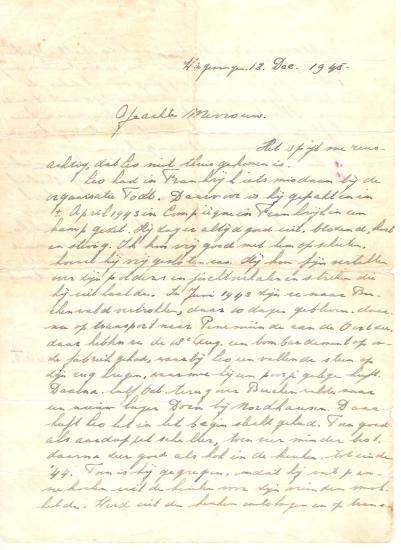 Wageningen. 13. Dec. 1945.
Geachte Mevrouw.
Het spijt me reus-
achtig, dat Leo niet thuis gekomen is.
Leo had in Frankrijk iets misdaan bij de
organisatie Todt. Daarvoor is hij gepakt en in
April 1943 in Compiègne in Frankrijk in een
kamp gezet. Hij zag er altijd goed uit, blozend, kort
en stevig. Ik kon vrij goed met hem opschieten,
hoewel hij vrij gesloten was. Hij kon fijn vertellen
over zijn polders en jachtverhalen en streken die
hij uithaalde. In Juni 1943 zijn we naar Bu-
chenwald vertrokken, daar 10 dagen gebleven, daar-
na op transport naar Penemünde aan de Oostzee,
daar hebben we de 18e Aug. een bombardement op
de fabriek gehad, waarbij Leo een vallende steen op
zijn rug kreeg, waarmee hij een poosje gelegen heeft.
Daarna half Oct. terug over Buchenwald naar
een nieuw lager Dora bij Nordhausen. Daar
heeft Leo het in het begin slecht gehad. Toen goed
als aardappelschiller,
daarna zeer goed als kok in de keuken, tot einde
'44. Toen is hij gegrepen, omdat hij
uit de keuken voor zijn vrienden
Werd uit de keuken ontslagen en op trans-